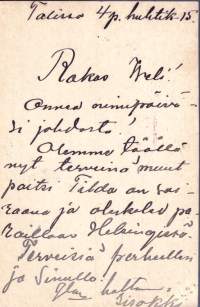 Talissa 4 p. huhtik. 15.
Rakas Welj!
Onnea nimipäivä-
si johdosta!
Olemme täällä
nyt terveinä muut
paitsi Tilda on sai-
raana ja oleskelee pa-
raillaan Helsingissä.
Terveisiä perheellesi
ja Sinulle